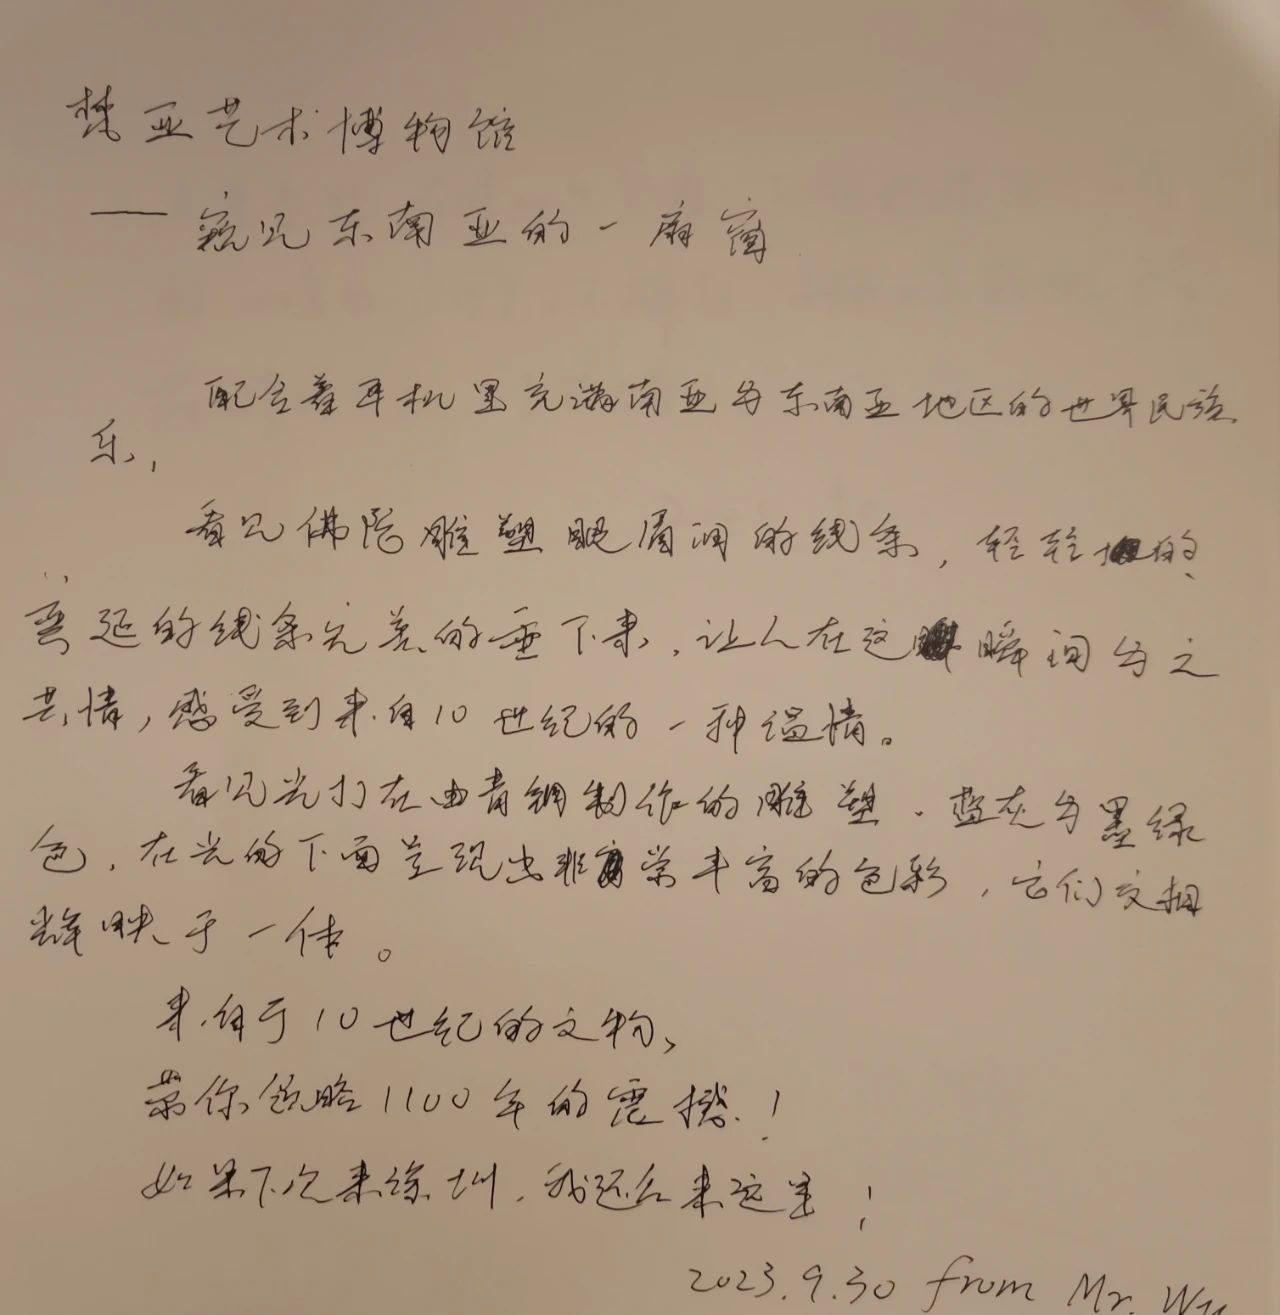 梵亚艺术博物馆
—— 窥见东南亚的一扇窗
配合着耳机里充满南亚与东南亚地区的世界民族
乐，
看见佛陀雕塑眼眉间的线条，轻轻的
蔓延的线条完美的垂下来，让人在这瞬间与之
共情，感受到来自10世纪的一种温情。
看见光打在由青铜制作的雕塑，蓝灰与墨绿
色，在光的下面呈现出非常丰富的色彩，它们交相
辉映于一体。
来自于10世纪的文物，
带你领略1100年的震撼！
如果下次来深圳，我还会来这里！
2023.9.30 from Mr